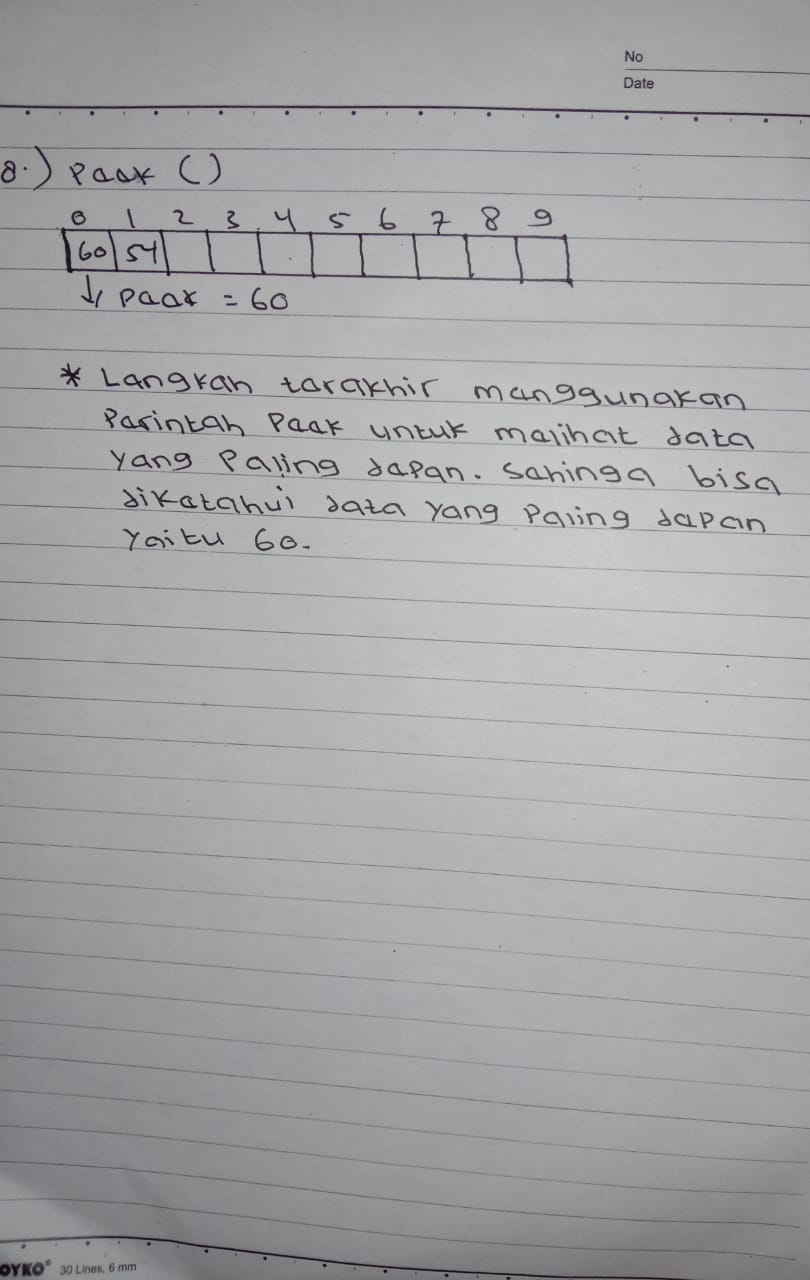 No
Date
8.) Peek ()
0 1 2 3 4 5 6 7 8 9
60 54
↓ Peek = 60
* Langkah terakhir menggunakan
Perintah Peek untuk melihat data
yang Paling depan. Sehinga bisa
diketahui data yang Paling depan
Yaitu 60.
OYKO® 30 Lines, 6 mm